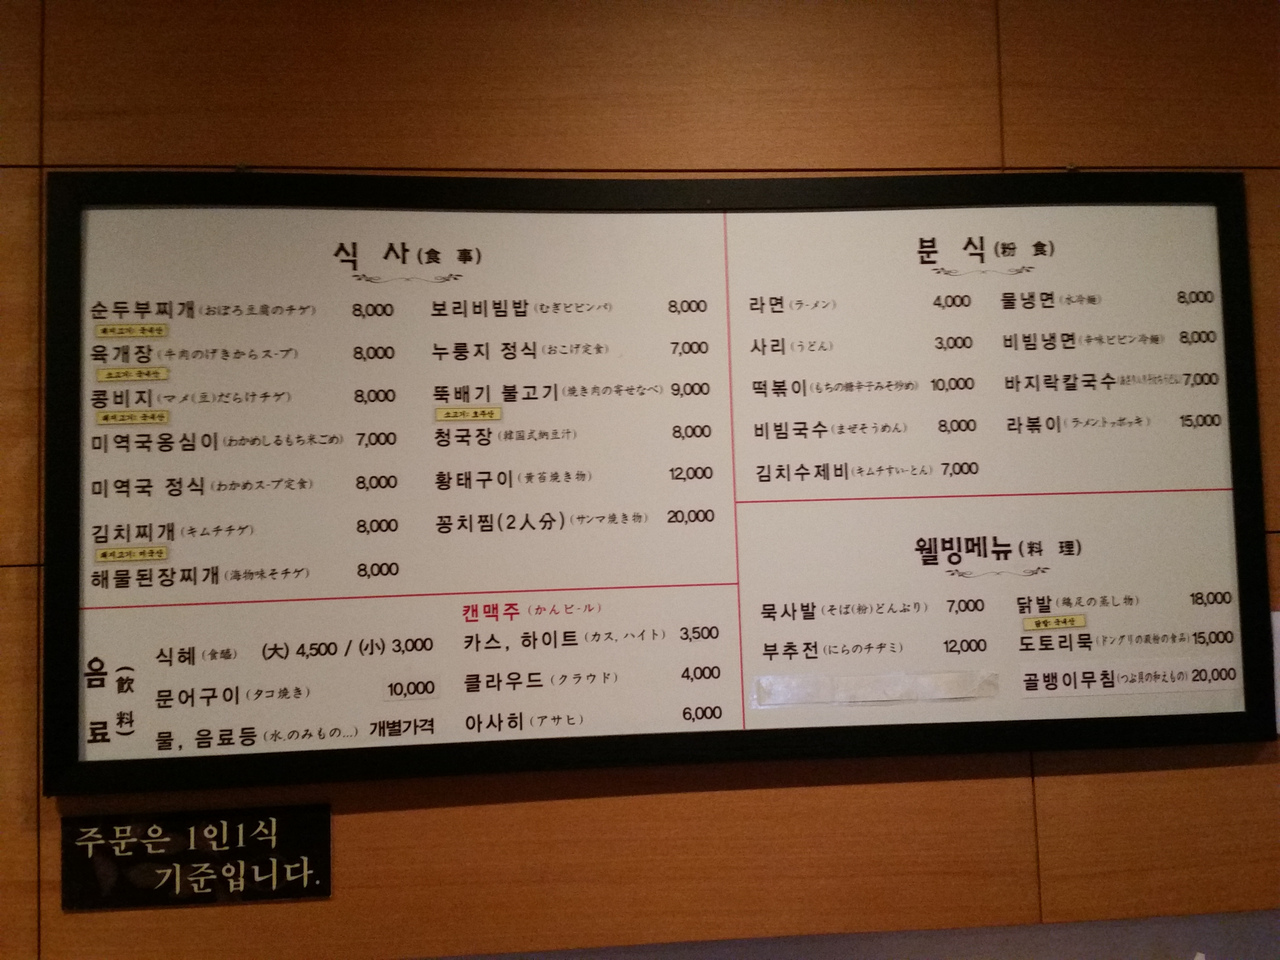 식 사 (食 事)
순두부찌개 (おぼろ豆腐のチゲ) 8,000
돼지고기: 국내산
육개장 (牛肉のげきからスープ) 8,000
소고기: 국내산
콩비지 (マメ(豆)だらけチゲ) 8,000
돼지고기: 국내산
미역국옹심이 (わかめしるもち米ごめ) 7,000
미역국 정식 (わかめスープ定食) 8,000
김치찌개 (キムチチゲ) 8,000
돼지고기: 미국산
해물된장찌개 (海物味そチゲ) 8,000
보리비빔밥 (むぎビビンバ) 8,000
누룽지 정식 (おこげ定食) 7,000
뚝배기 불고기 (焼き肉の寄せなべ) 9,000
소고기: 호주산
청국장 (韓国式納豆汁) 8,000
황태구이 (黄苔焼き物) 12,000
꽁치찜(2人分) (サンマ焼き物) 20,000
음료 (飮料)
식혜 (食醯) (大) 4,500 / (小) 3,000
문어구이 (タコ焼き) 10,000
물, 음료등 (水,のみもの...) 개별가격
캔맥주 (かんビール)
카스, 하이트 (カス, ハイト) 3,500
클라우드 (クラウド) 4,000
아사히 (アサヒ) 6,000
분 식 (粉 食)
라면 (ラーメン) 4,000
사리 (うどん) 3,000
떡볶이 (もちの糖辛子みそ炒め) 10,000
비빔국수 (まぜそうめん) 8,000
김치수제비 (キムチすいーとん) 7,000
물냉면 (水冷麺) 8,000
비빔냉면 (辛味ビビン冷麺) 8,000
바지락칼국수 7,000
라볶이 (ラーメントッポッキ) 15,000
웰빙메뉴 (料 理)
묵사발 (そば(粉)どんぶり) 7,000
부추전 (にらのチヂミ) 12,000
닭발 (鶏足の蒸し物) 18,000
닭발: 국내산
도토리묵 (ドングリの澱粉の食品) 15,000
골뱅이무침 (つぶ貝の和えもの) 20,000
주문은 1인1식
기준입니다.